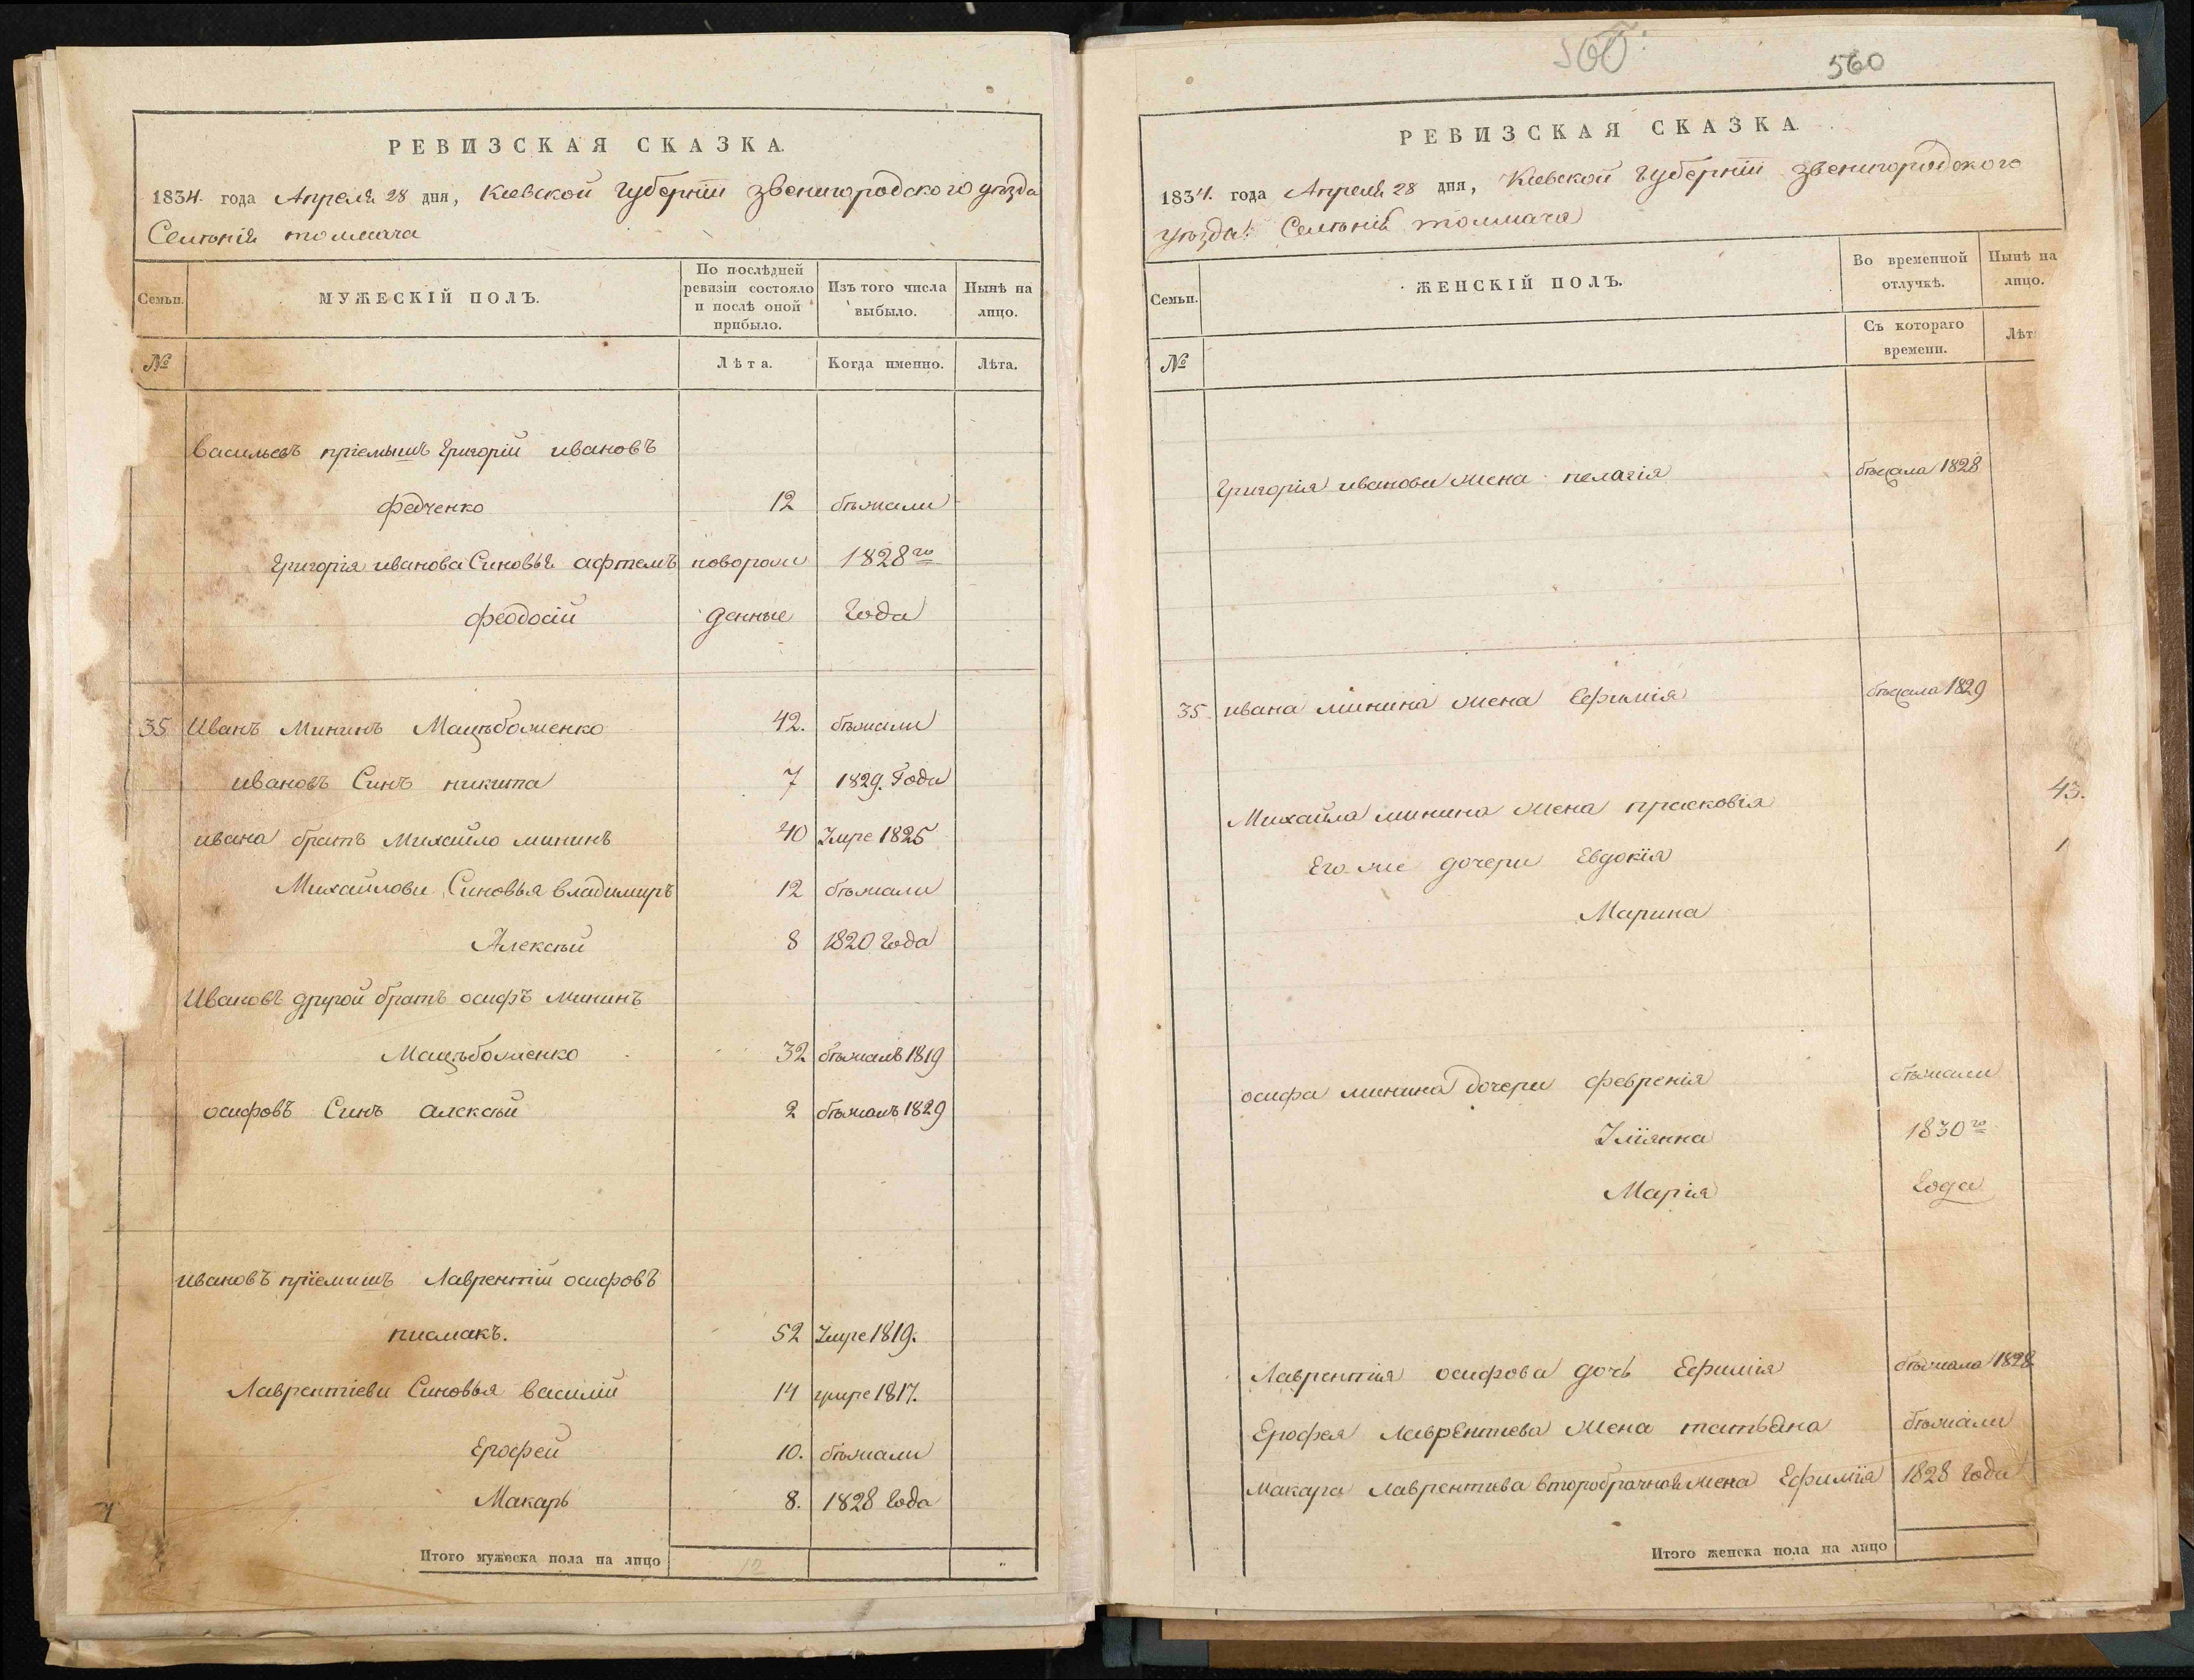 РЕВИЗСКАЯ СКАЗКА.
1834. года Апреля 28 дня, Киевской губернїи звенигородского уѣзда
Селѣнія толмача
Семьи.
МУЖЕСКІЙ ПОЛЪ.
По послѣдней ревизіи состояло и послѣ оной прибыло.
Изъ того числа выбыло.
Нынѣ на лицо.
№
Лѣта.
Когда именно.
Лѣта.
васильевъ пріемышъ Григорій ивановъ
федченко 12 бѣжали
Григорія иванова Синовья афтемъ новорож 1828го
феодосій денные Года
35 Иванъ Мининъ Мацѣбоженко 42. бѣжали
ивановъ Синъ никита 7 1829. Года
ивана братъ Михайло мининъ 40 Умре 1825
Михайлови Синовья владимиръ 12 бѣжали
Алексѣй 8 1820 года
Ивановъ другой братъ осифъ мининъ
Мацѣбоженко 32 бѣжалъ 1819
осифовъ Синъ алексѣй 2 бѣжалъ 1829
ивановъ пріемишъ Лаврентій осифовъ
52 Умре 1819.
Лаврентіеви Синовья василій 14 умре 1817.
Ерофей 10. бѣжали
Макаръ 8. 1828 года
Итого мужеска пола на лицо 12 "
560
560
РЕВИЗСКАЯ СКАЗКА.
1834. года Апреля 28 дня, Киевской губернїи звенигородского
уѣзда: Селѣнія толмача
Семьи.
ЖЕНСКІЙ ПОЛЪ.
Во временной отлучкѣ.
Нынѣ на лицо.
№
Съ котораго времени.
Лѣт
Григорія иванова жена пелагія бѣжала 1828
35. ивана минина жена Ефимія бѣжала 1829
Михайла минина жена прасковія 43.
Его же дочери Евдокія 1
Марина
осифа минина дочери февренія бѣжали
Улїянна 1830го
Марія Года
Лаврентія осифова дочь Ефимія бѣжала 1828
Ерофея лаврентиева жена татьяна бѣжали
макара лаврентиева второбрачная жена Ефимїя 1828 года
Итого женска пола на лицо